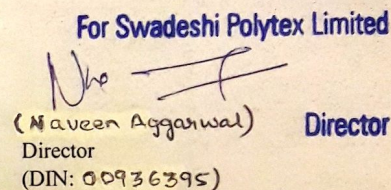 For Swadeshi Polytex Limited
(Naveen Aggarwal) Director
Director
(DIN: 00936395)